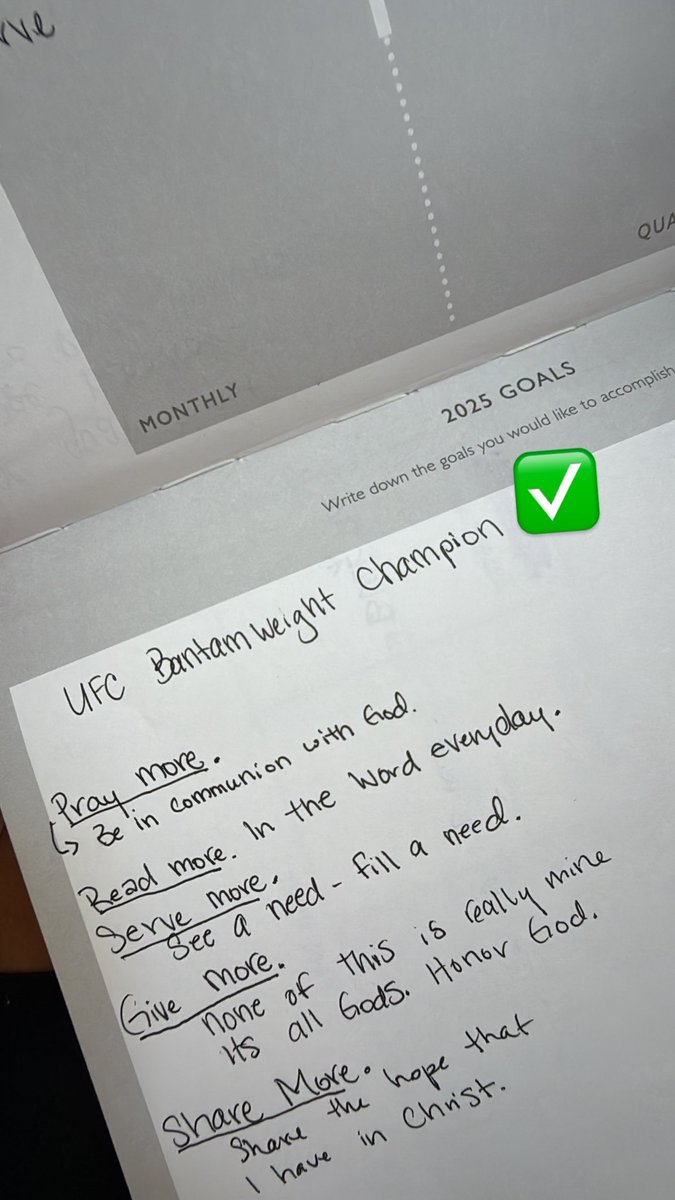 MONTHLY
2025 GOALS
Write down the goals you would like to accomplish
UFC Bantamweight Champion
Pray more.
↳ Be in communion with God.
Read more. In the Word everyday.
Serve more.
See a need - fill a need.
Give more.
none of this is really mine
Its all Gods. Honor God.
Share More.
Share the hope that
I have in Christ.